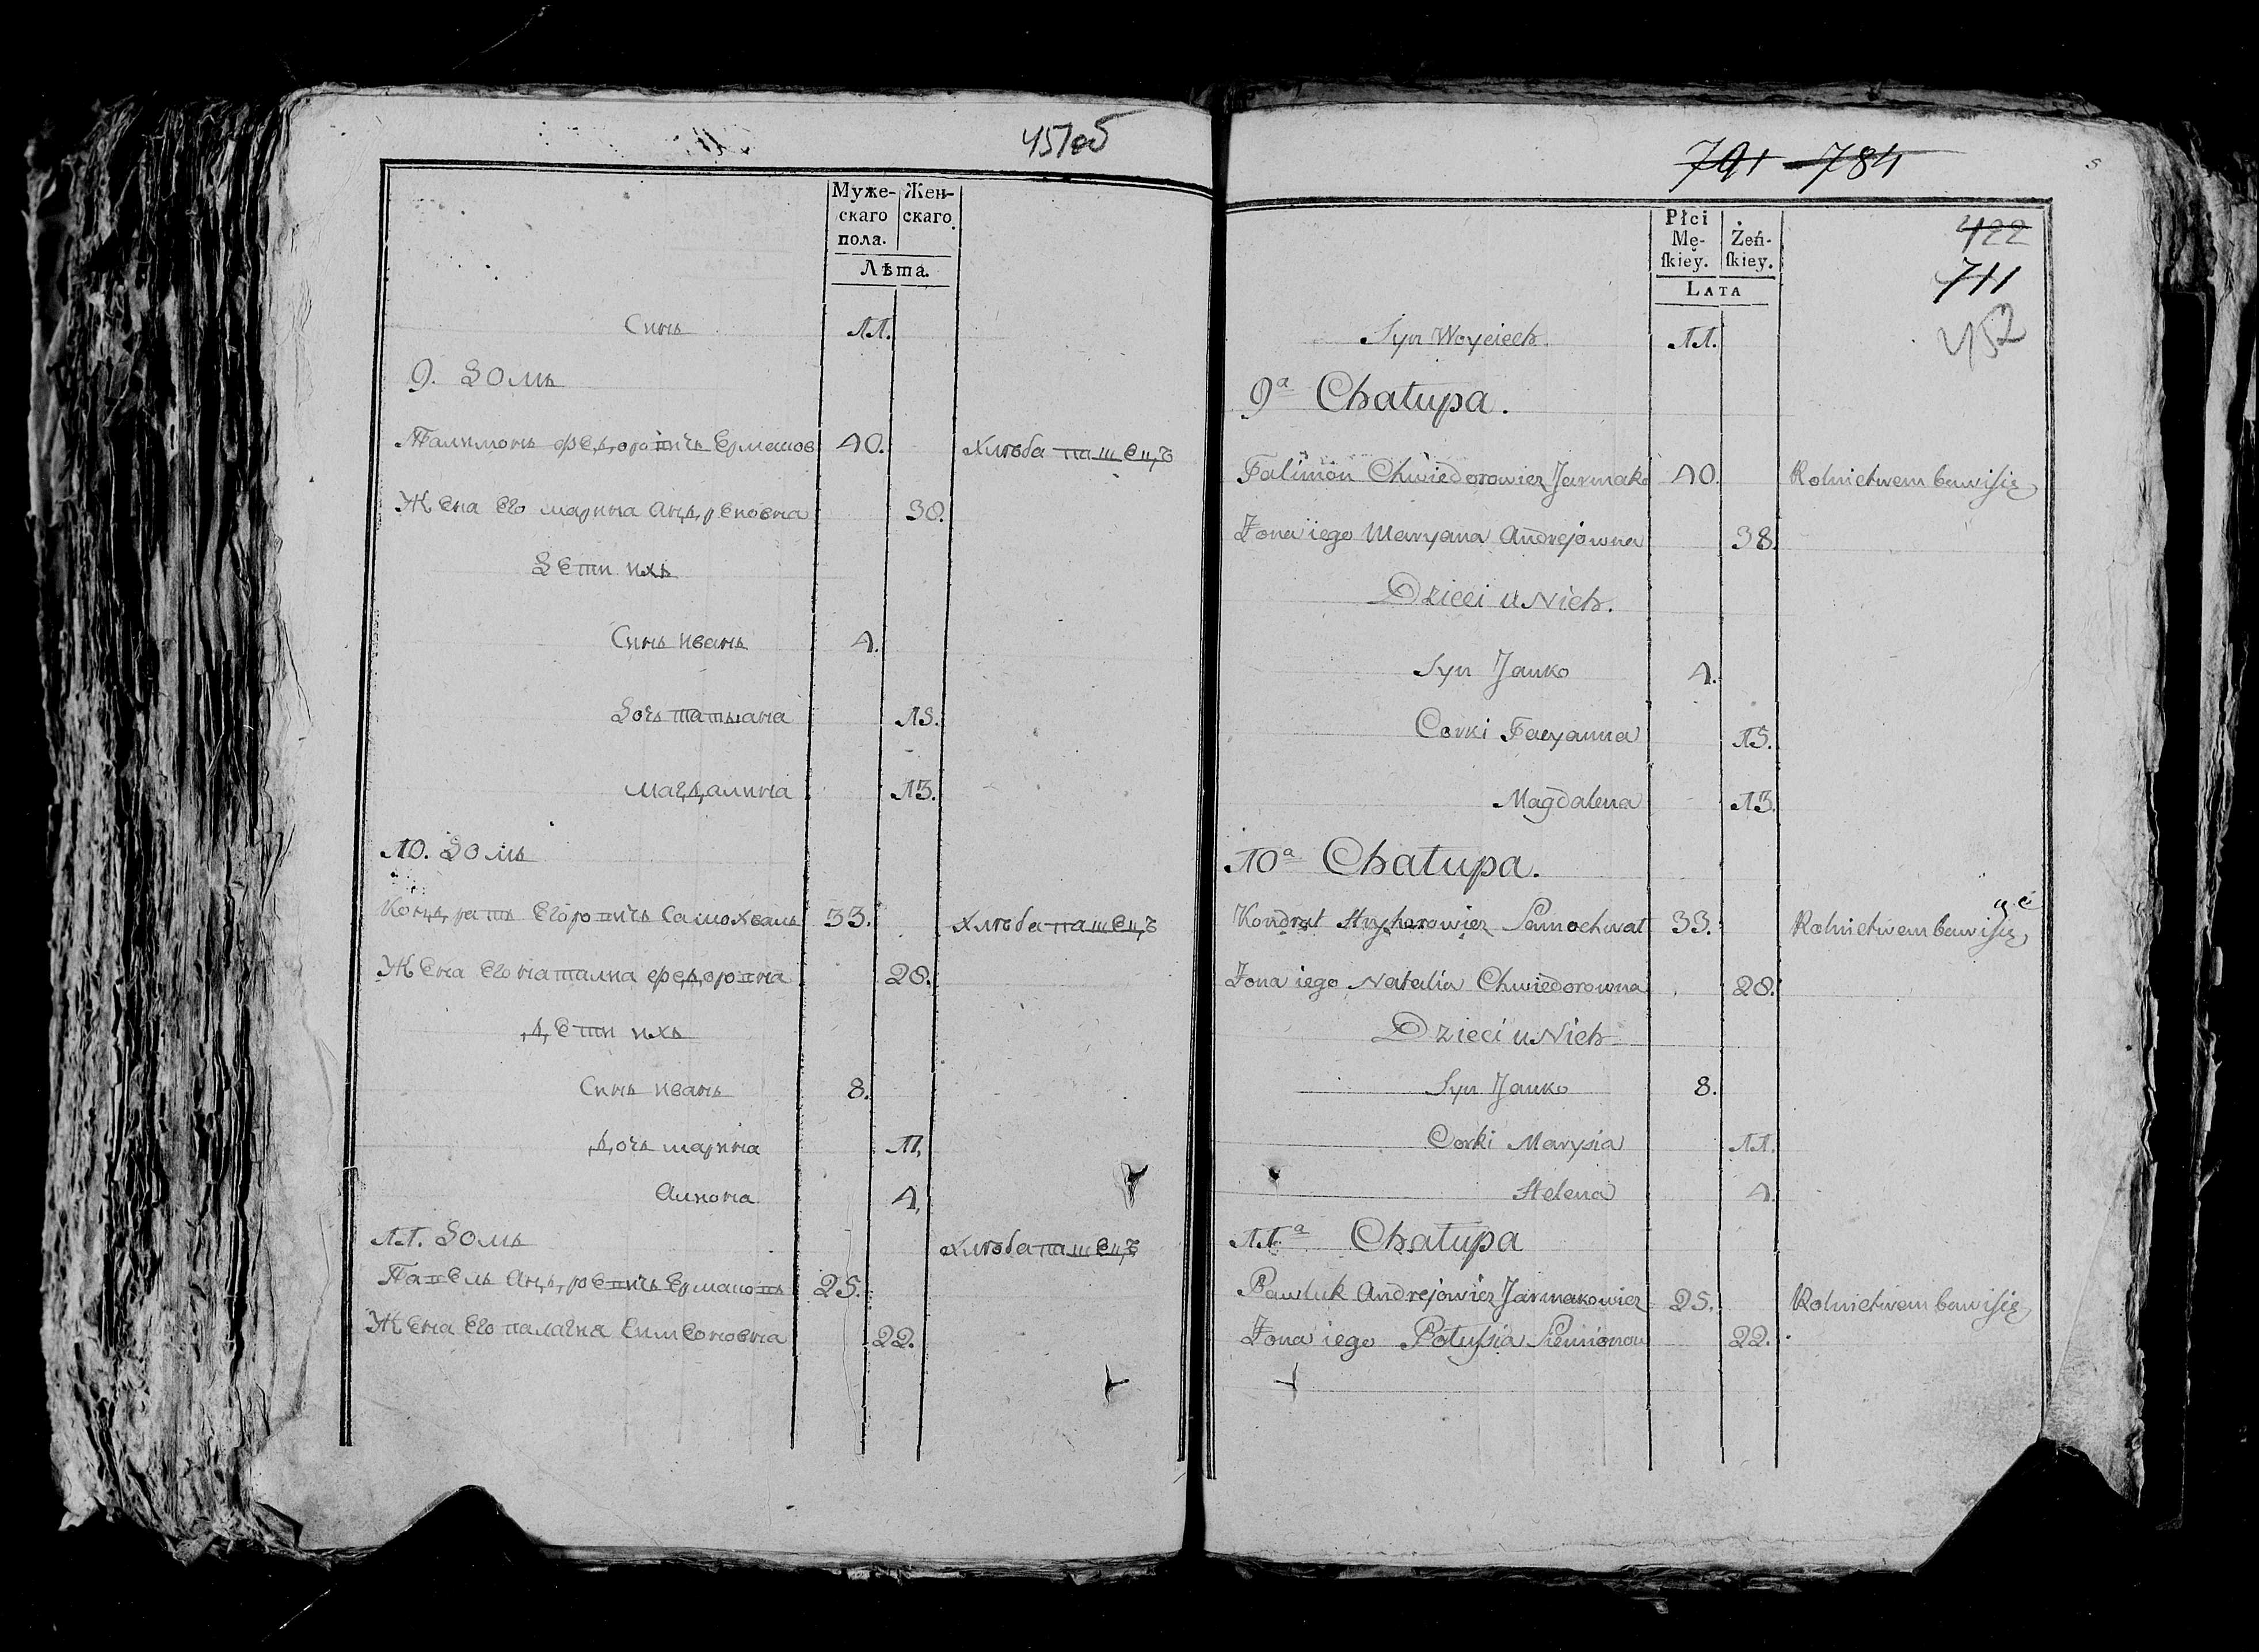 451об
Муже- Жен-
скаго скаго.
пола.
Лѣта.
Синъ 11.
9. Домъ
Талимонъ Федоравичъ Ермаков 40. хлѣба пашецъ
Жена его марина андреновна 38.
Дети ихъ
Синъ иванъ 4.
Дочъ татьяна 15.
магдалина 13.
10. Домъ
Кондратъ Егоровичъ Самохвалъ 33. хлѣба пашецъ
Жена его наталиа федоровна 28.
дети ихъ
Синъ иванъ 8.
дочъ марина 11.
алиона 4.
11. Домъ хлѣба пашецъ
Павелъ Андревичъ Ермаковъ 25.
Жена его палагия Симеоновна 22.
791 784
Płci
Mę- Żeń-
ſkiey. ſkiey.
LATA
422
711
452
Syn Woyciech 11.
9a Chałupa.
Falimon Chwiedorowicz Jarmako 40. Rolnictwem bawi się
Żona iego Maryana Andrejowna 38.
Dzieci u Nich.
Syn Janko 4.
Corki Tacyanna 15.
Magdalena 13.
10a Chałupa.
Kondrat Hryhorowicz Samochwał 33. Rolnictwem bawi się
Żona iego Natalia Chwiedorowna 28.
Dzieci u Nich
Syn Janko 8.
Corki Marysia 11.
Helena 4.
11a Chałupa
Pawluk Andrejowicz Jarmakowicz 25. Rolnictwem bawi się
Żona iego Połusia Siemionow 22.